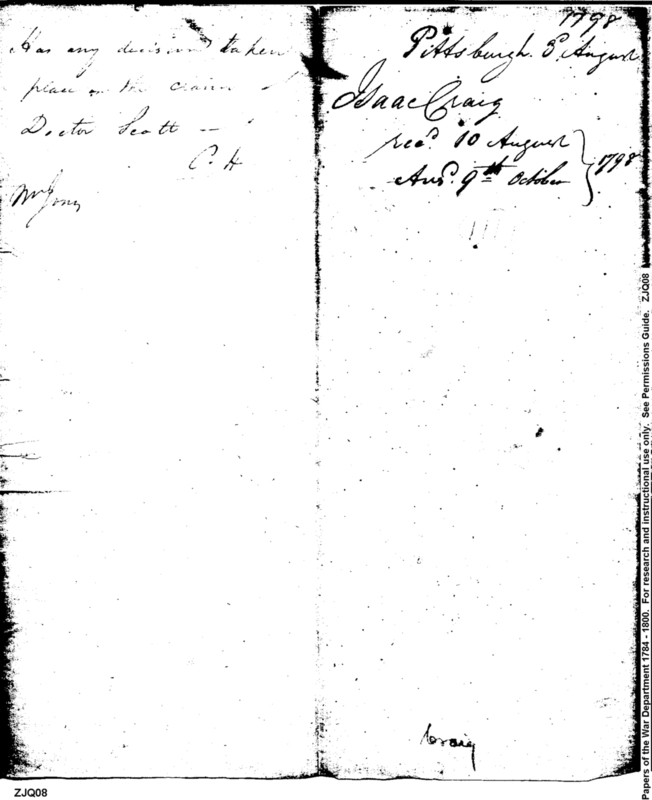 Has any decision taken
place on the claim of
Doctor Scott —
C. H
Mr Jones
1798
Pittsburgh 3 August
Isaac Craig
recd. 10 August
Ansd. 9th October
1798
Craig
ZJQ08
Papers of the War Department 1784 - 1800. For research and instructional use only. See Permissions Guide. ZJQ08